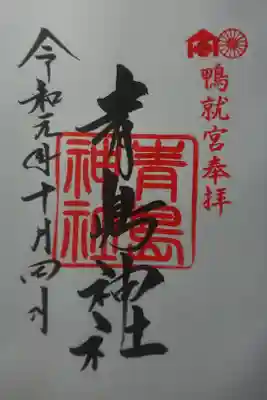 鴨就宮奉拝
青島神社
青島
神社
令和元年十月四日